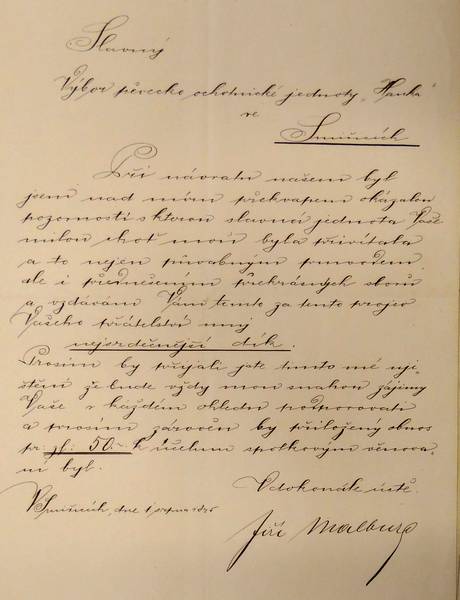 Slavný
Výbor pěvecko ochotnické jednoty „Hanka"
ve
Smiřicích
Při návratu našem byl
jsem nad míru překvapen okázalou
pozorností s kterou slavná jednota Vaše
milou choť mou byla přivítala
a to nejen půvabným průvodem
ale i přednešením překrásných sborů
a vzdávám Vám tímto za tento projev
Vašeho přátelství můj
nejsrdečnější dík.
Prosím by přijali jste tímto mé uji-
štění že bude vždy mou snahou zájmy
Vaše v každém ohledu podporovati
a prosím zároveň by přiložený obnos
pr. zl. 50.- k účelům spolkovým věnova-
ný byl.
V dokonalé úctě.
V Smiřicích, dne 1. srpna
Jiří Malburg